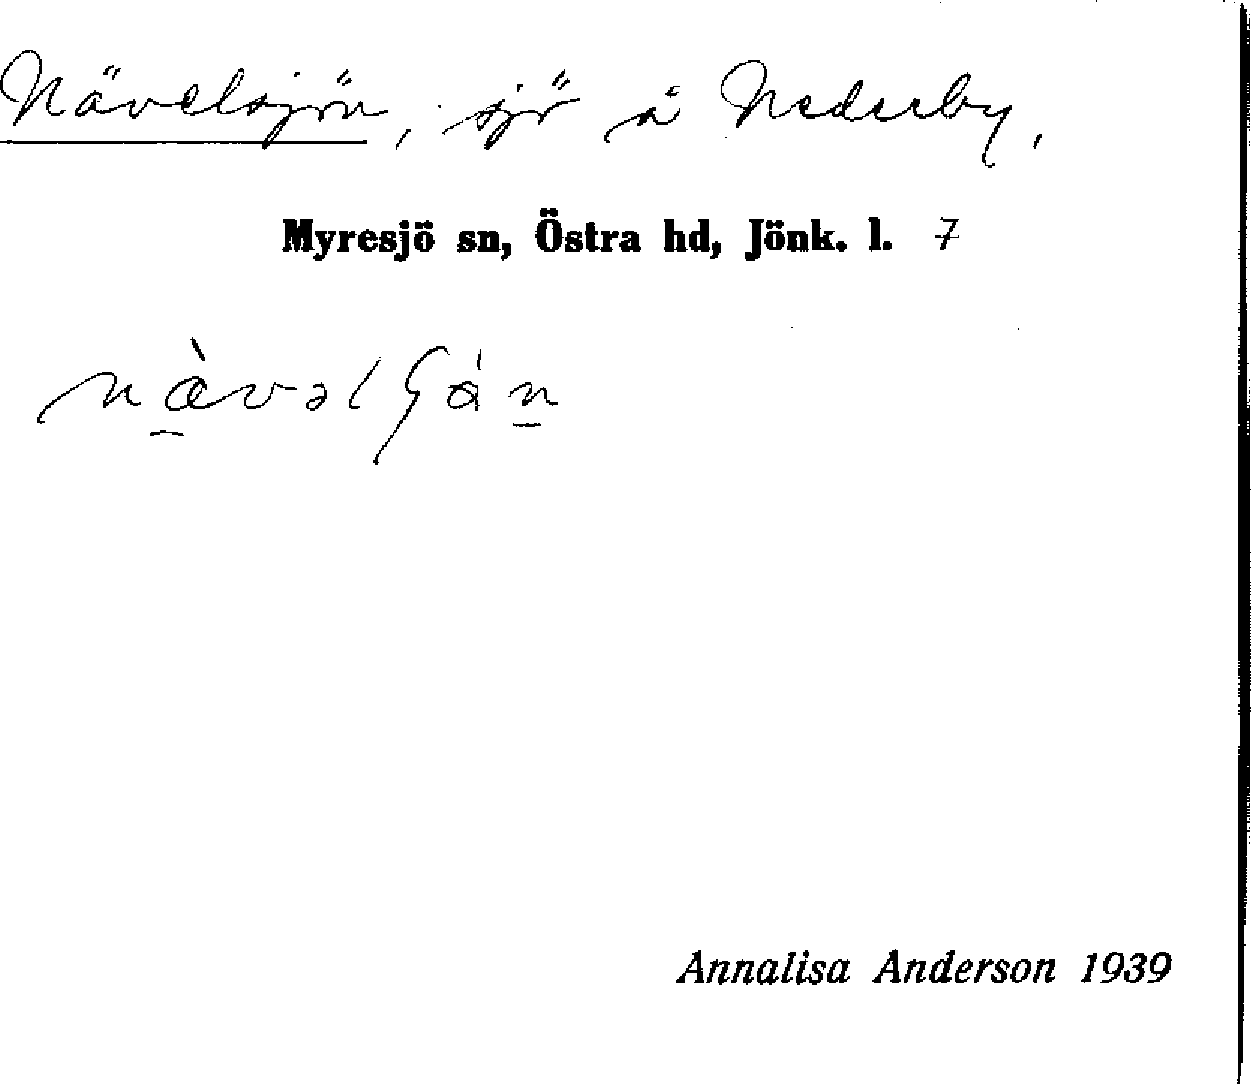 Nävelsjön, sjö å Nederby,
Myresjö sn, Östra hd, Jönk. l. 7
Annalisa Anderson 1939